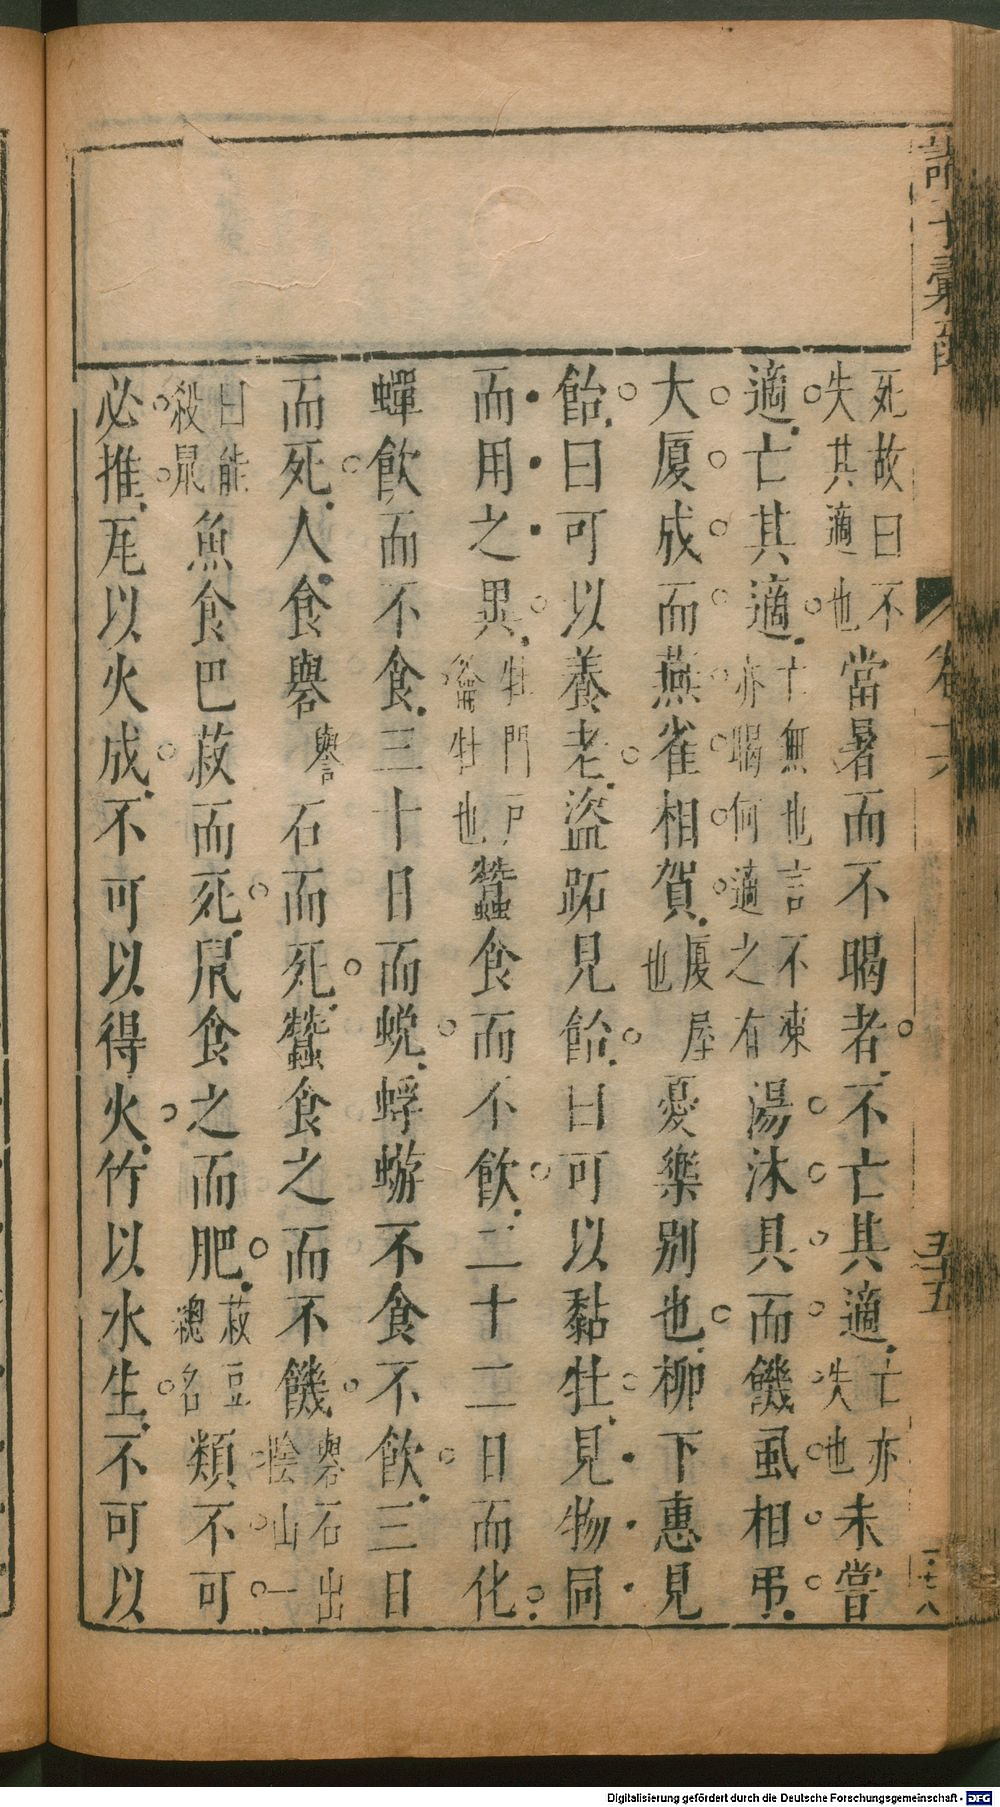 死故曰不失其適也當暑而不暍者不亡其適亡亦失也未嘗
適亡其適亡無也言不凍亦暍何適之有湯沐具而饑虱相弔
大厦成而燕雀相賀厦屋也憂樂別也柳下惠見
飴曰可以養老盜跖見飴曰可以黏牡見物同
而用之異牡門戶籥牡也蠶食而不飲二十二日而化
蟬飲而不食三十日而蛻蜉蝣不食不飲三日
而死人食礜譽石而死蠶食之而不饑礜石出陰山一
曰能殺鼠魚食巴菽而死鼠食之而肥菽豆總名類不可
必推瓦以火成不可以得火竹以水生不可以
卷十六
五十五
Digitalisierung gefördert durch die Deutsche Forschungsgemeinschaft - DFG